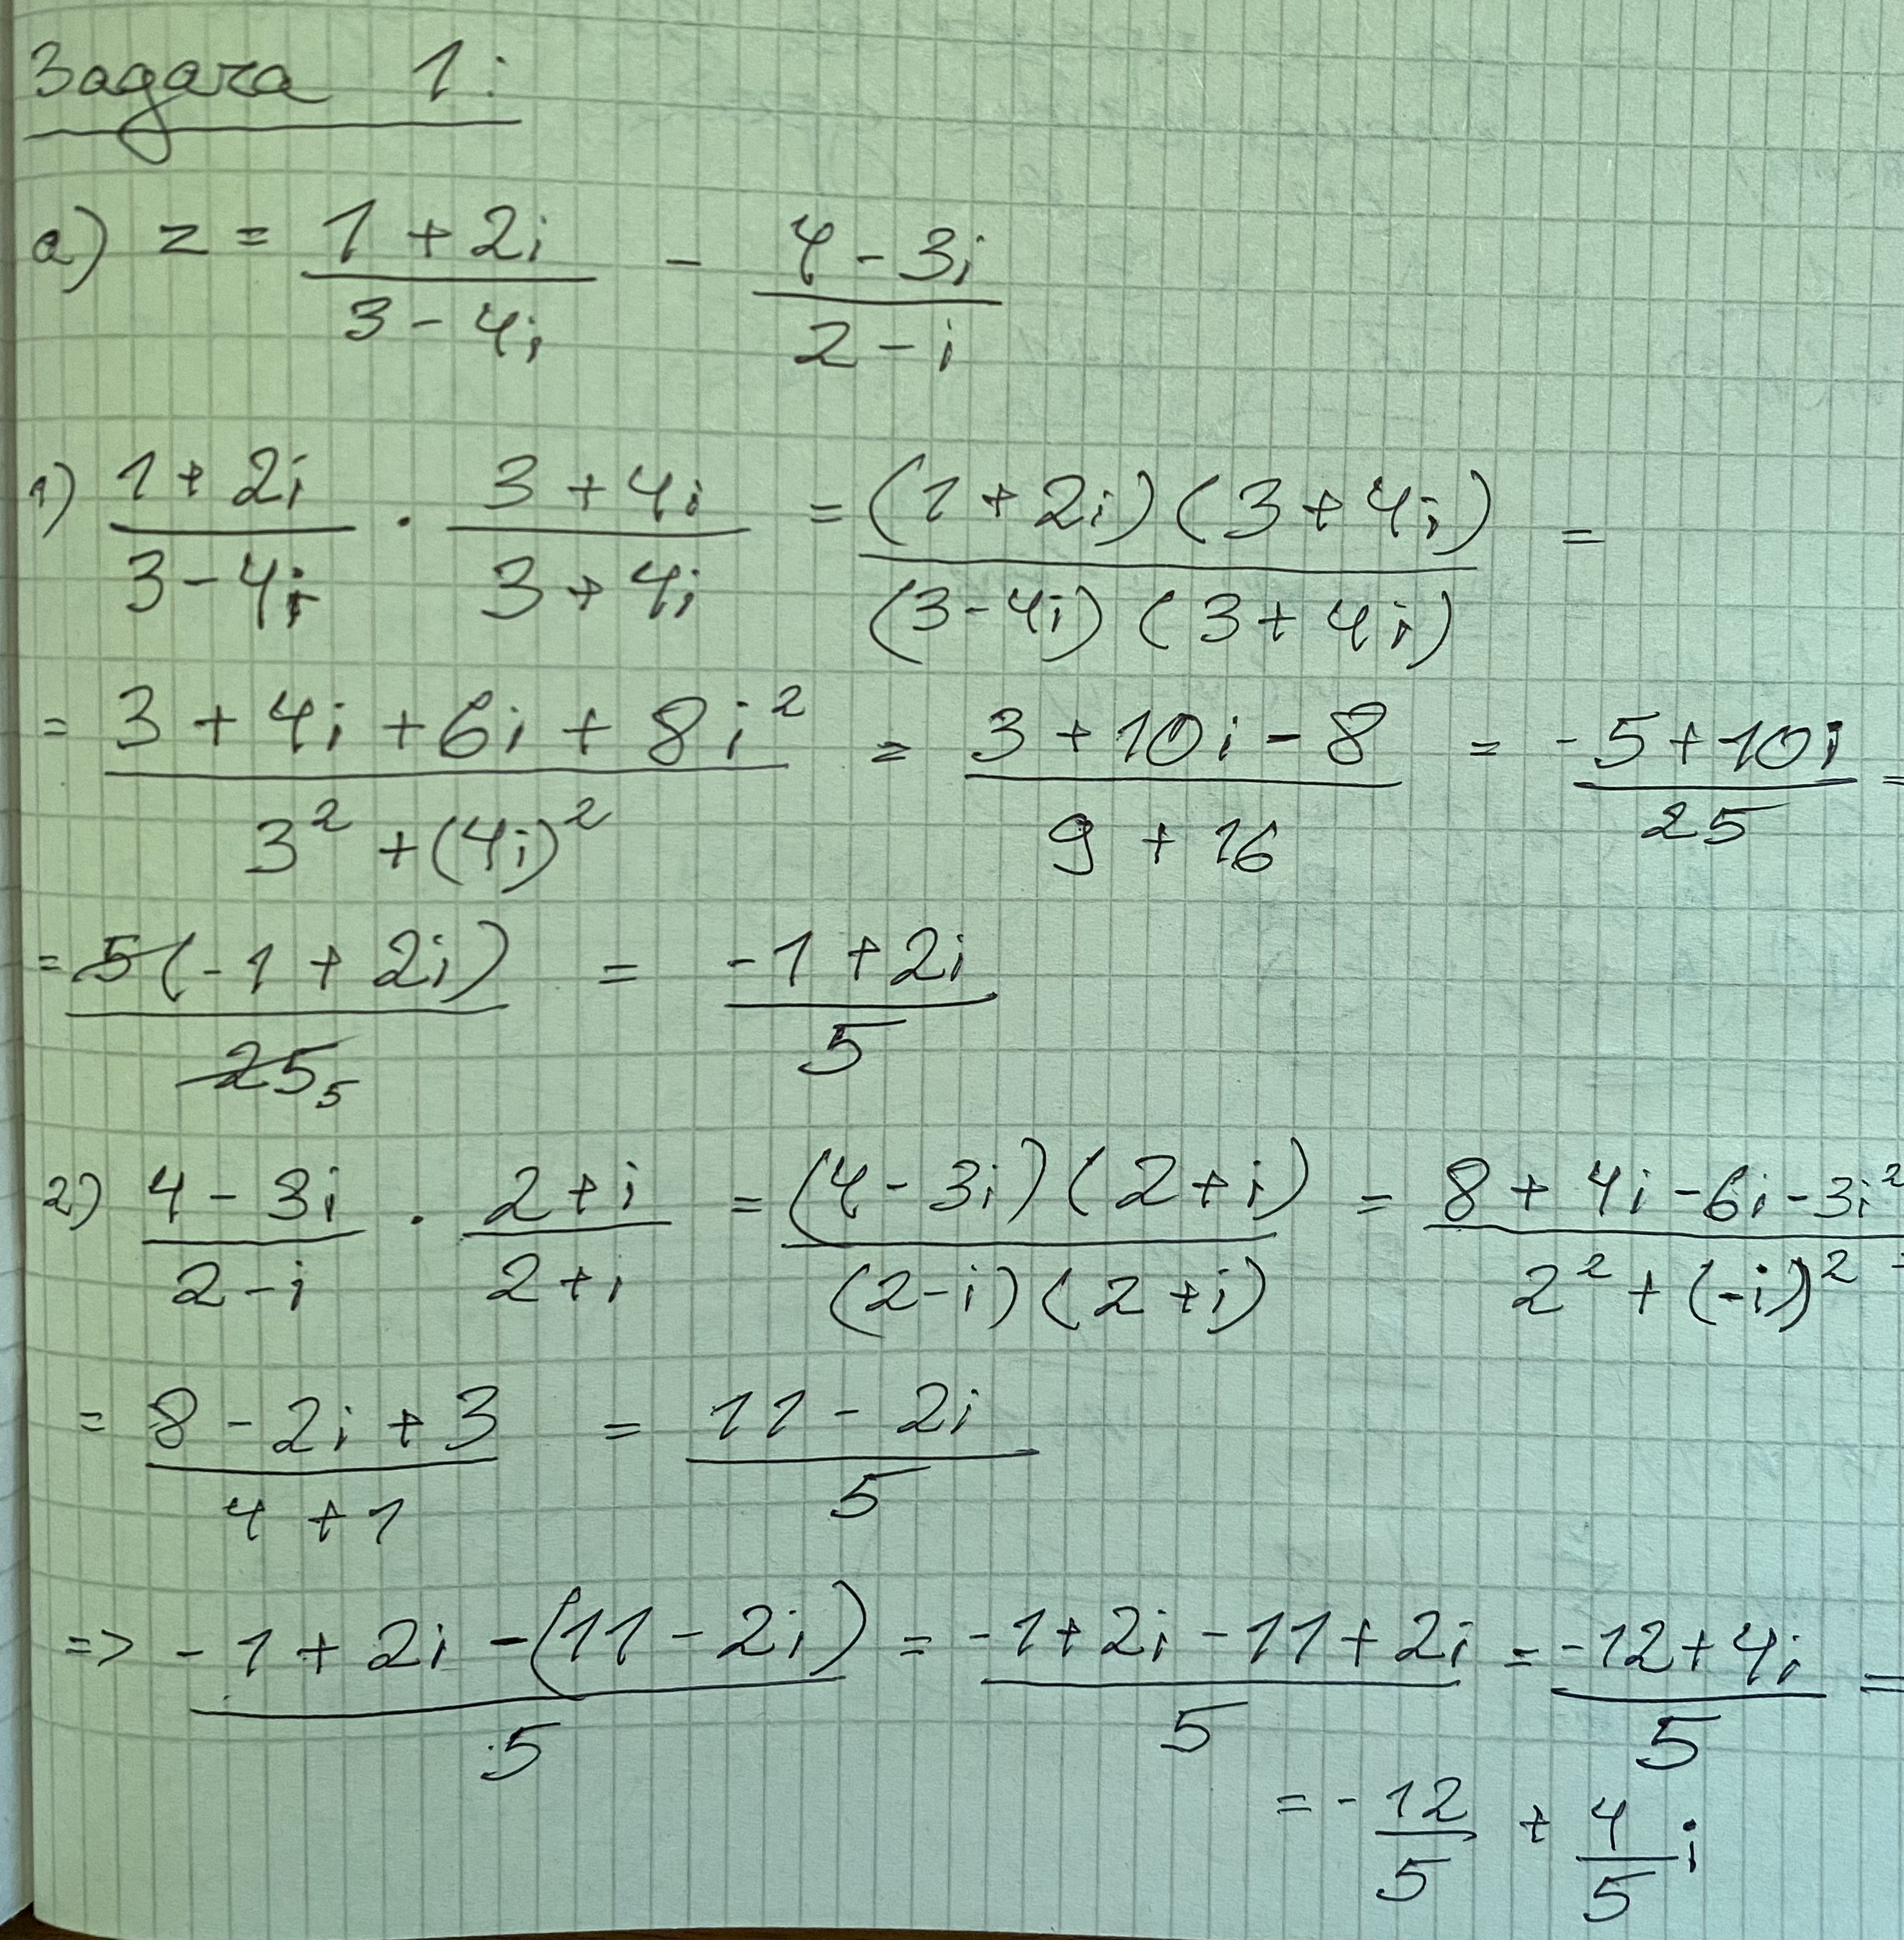 Задача 1:
a) z = (1 + 2i)/(3 - 4i) - (4 - 3i)/(2 - i)
1) (1 + 2i)/(3 - 4i) · (3 + 4i)/(3 + 4i) = ((1 + 2i)(3 + 4i))/((3 - 4i)(3 + 4i)) =
= (3 + 4i + 6i + 8i²)/(3² + (4i)²) = (3 + 10i - 8)/(9 + 16) = (-5 + 10i)/25 =
= 5(-1 + 2i)/25 5 = (-1 + 2i)/5
2) (4 - 3i)/(2 - i) · (2 + i)/(2 + i) = ((4 - 3i)(2 + i))/((2 - i)(2 + i)) = (8 + 4i - 6i - 3i²)/(2² + (-i)²) =
= (8 - 2i + 3)/(4 + 1) = (11 - 2i)/5
=> (-1 + 2i - (11 - 2i))/5 = (-1 + 2i - 11 + 2i)/5 = (-12 + 4i)/5 =
= - 12/5 + 4/5 i